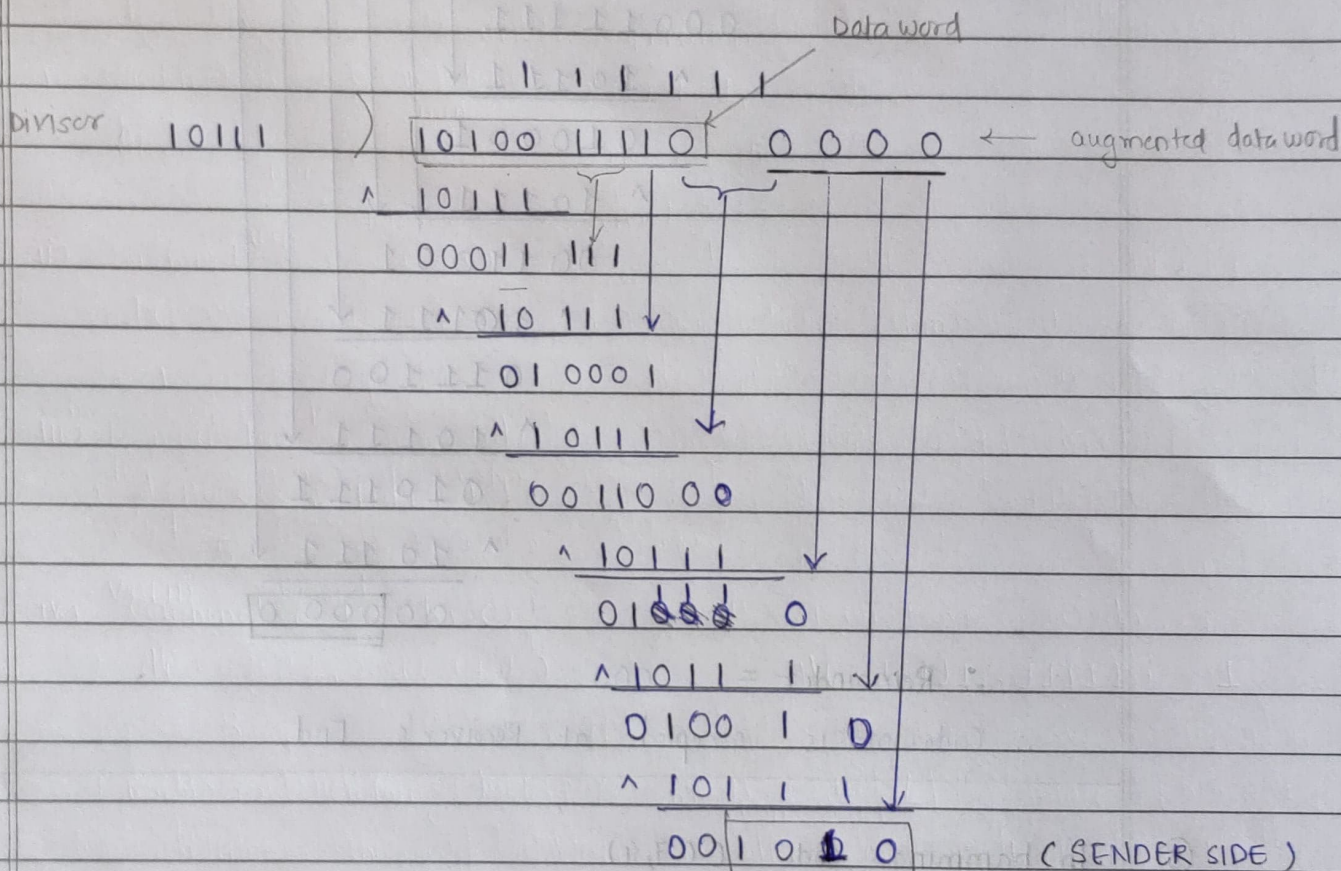 Data word
1 1 1 1 1 1
Divisor 10111 ) 10100 11110 0 0 0 0 ← augmented dataword
^ 10111
00011 111
^ 10 111
010001
^ 10111
0011000
^ 10111
01111 0
^ 1011 1
0100 1 0
^ 101 1 1
001010 (SENDER SIDE)